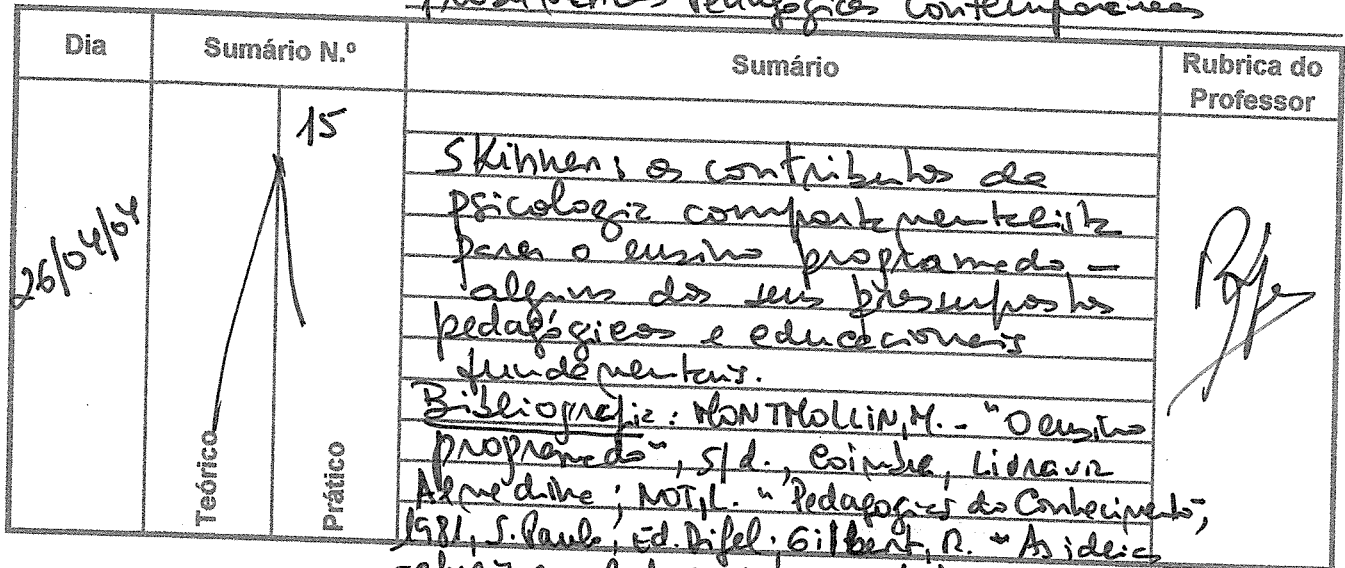 Pedagógicas Contemporâneas
Dia
Sumário N.º
Sumário
Rubrica do
Professor
26/04/04
15
Teórico
Prático
Skinner: os contributos da
psicologia comportamentalista
para o ensino programado –
alguns dos seus pressupostos
pedagógicos e educacionais
fundamentais.
Bibliografia: MONTMOLLIN, M. - "O ensino
programado", s/d., Coimbra, Livraria
Almedina; NOT, L. "Pedagogias do Conhecimento",
1981, S. Paulo, Ed. Difel; Gilbert, R. "As ideias